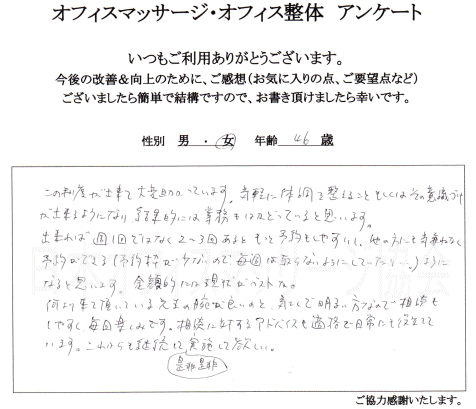 オフィスマッサージ・オフィス整体 アンケート
いつもご利用ありがとうございます。
今後の改善＆向上のために、ご感想（お気に入りの点、ご要望点など）
ございましたら簡単で結構ですので、お書き頂けましたら幸いです。
性別 男 ・ 女 年齢 46 歳
この制度が出来て大変助かっています。気軽に体調を整えること もしくはその意識づけ
が出来るようになり、結果的には業務もはかどっていると思います。
出来れば週1回ではなく2～3回あるともっと予約もしやすいし、他の方にも気兼ねなく
予約ができる（予約枠が少ないので毎週は取らないようにしていたり、、）ように
なると思います。金額的には現在がベストかな。
何より来て頂いている先生の腕が良いのと、気さくで明るい方なので相談も
しやすく毎回楽しみです。相談に対するアドバイスも適格で日常にも役立てて
います。これからも継続して実施して欲しい。
是非是非
ご協力感謝いたします。